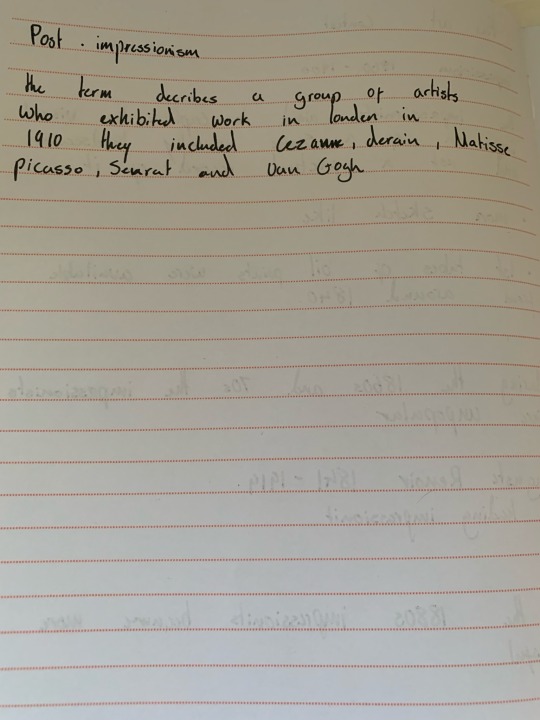 Post . impressionism
the term decribes a group of artists
who exhibited work in london in
1910 they included Cezanne, derain, Matisse
picasso, Seurat and Van Gogh